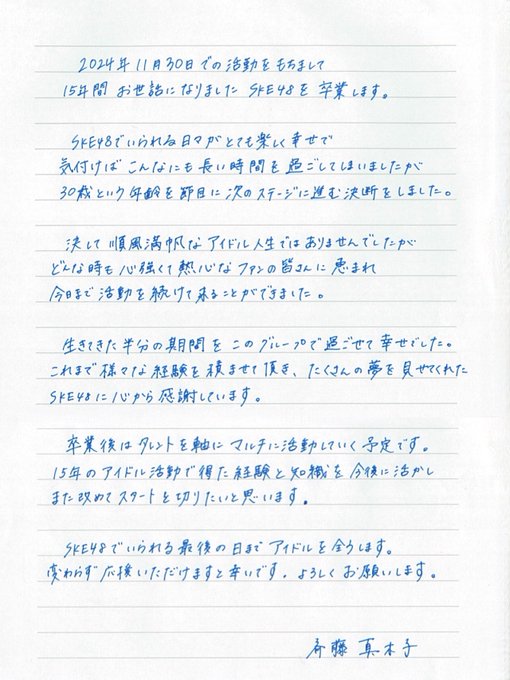 2024年11月30日での活動をもちまして
15年間 お世話になりました SKE48を 卒業します。
SKE48でいられる日々がとても楽しく幸せで
気付けば こんなにも長い時間を過ごしてしまいましたが
30歳という年齢を節目に次のステージに進む決断をしました。
決して 順風満帆な アイドル人生ではありませんでしたが
どんな時も心強くて熱心なファンの皆さんに恵まれ
今日まで活動を続けて来ることができました。
生きてきた半分の期間をこのグループで過ごせて幸せでした。
これまで様々な経験を積ませて頂き、たくさんの夢を見せてくれた
SKE48に心から感謝しています。
卒業後はタレントを軸にマルチに活動していく予定です。
15年のアイドル活動で得た経験と知識を今後に活かし
また改めてスタートを切りたいと思います。
SKE48でいられる最後の日までアイドルを全うします。
変わらず応援いただけますと幸いです。よろしくお願いします。
斉藤 真木子